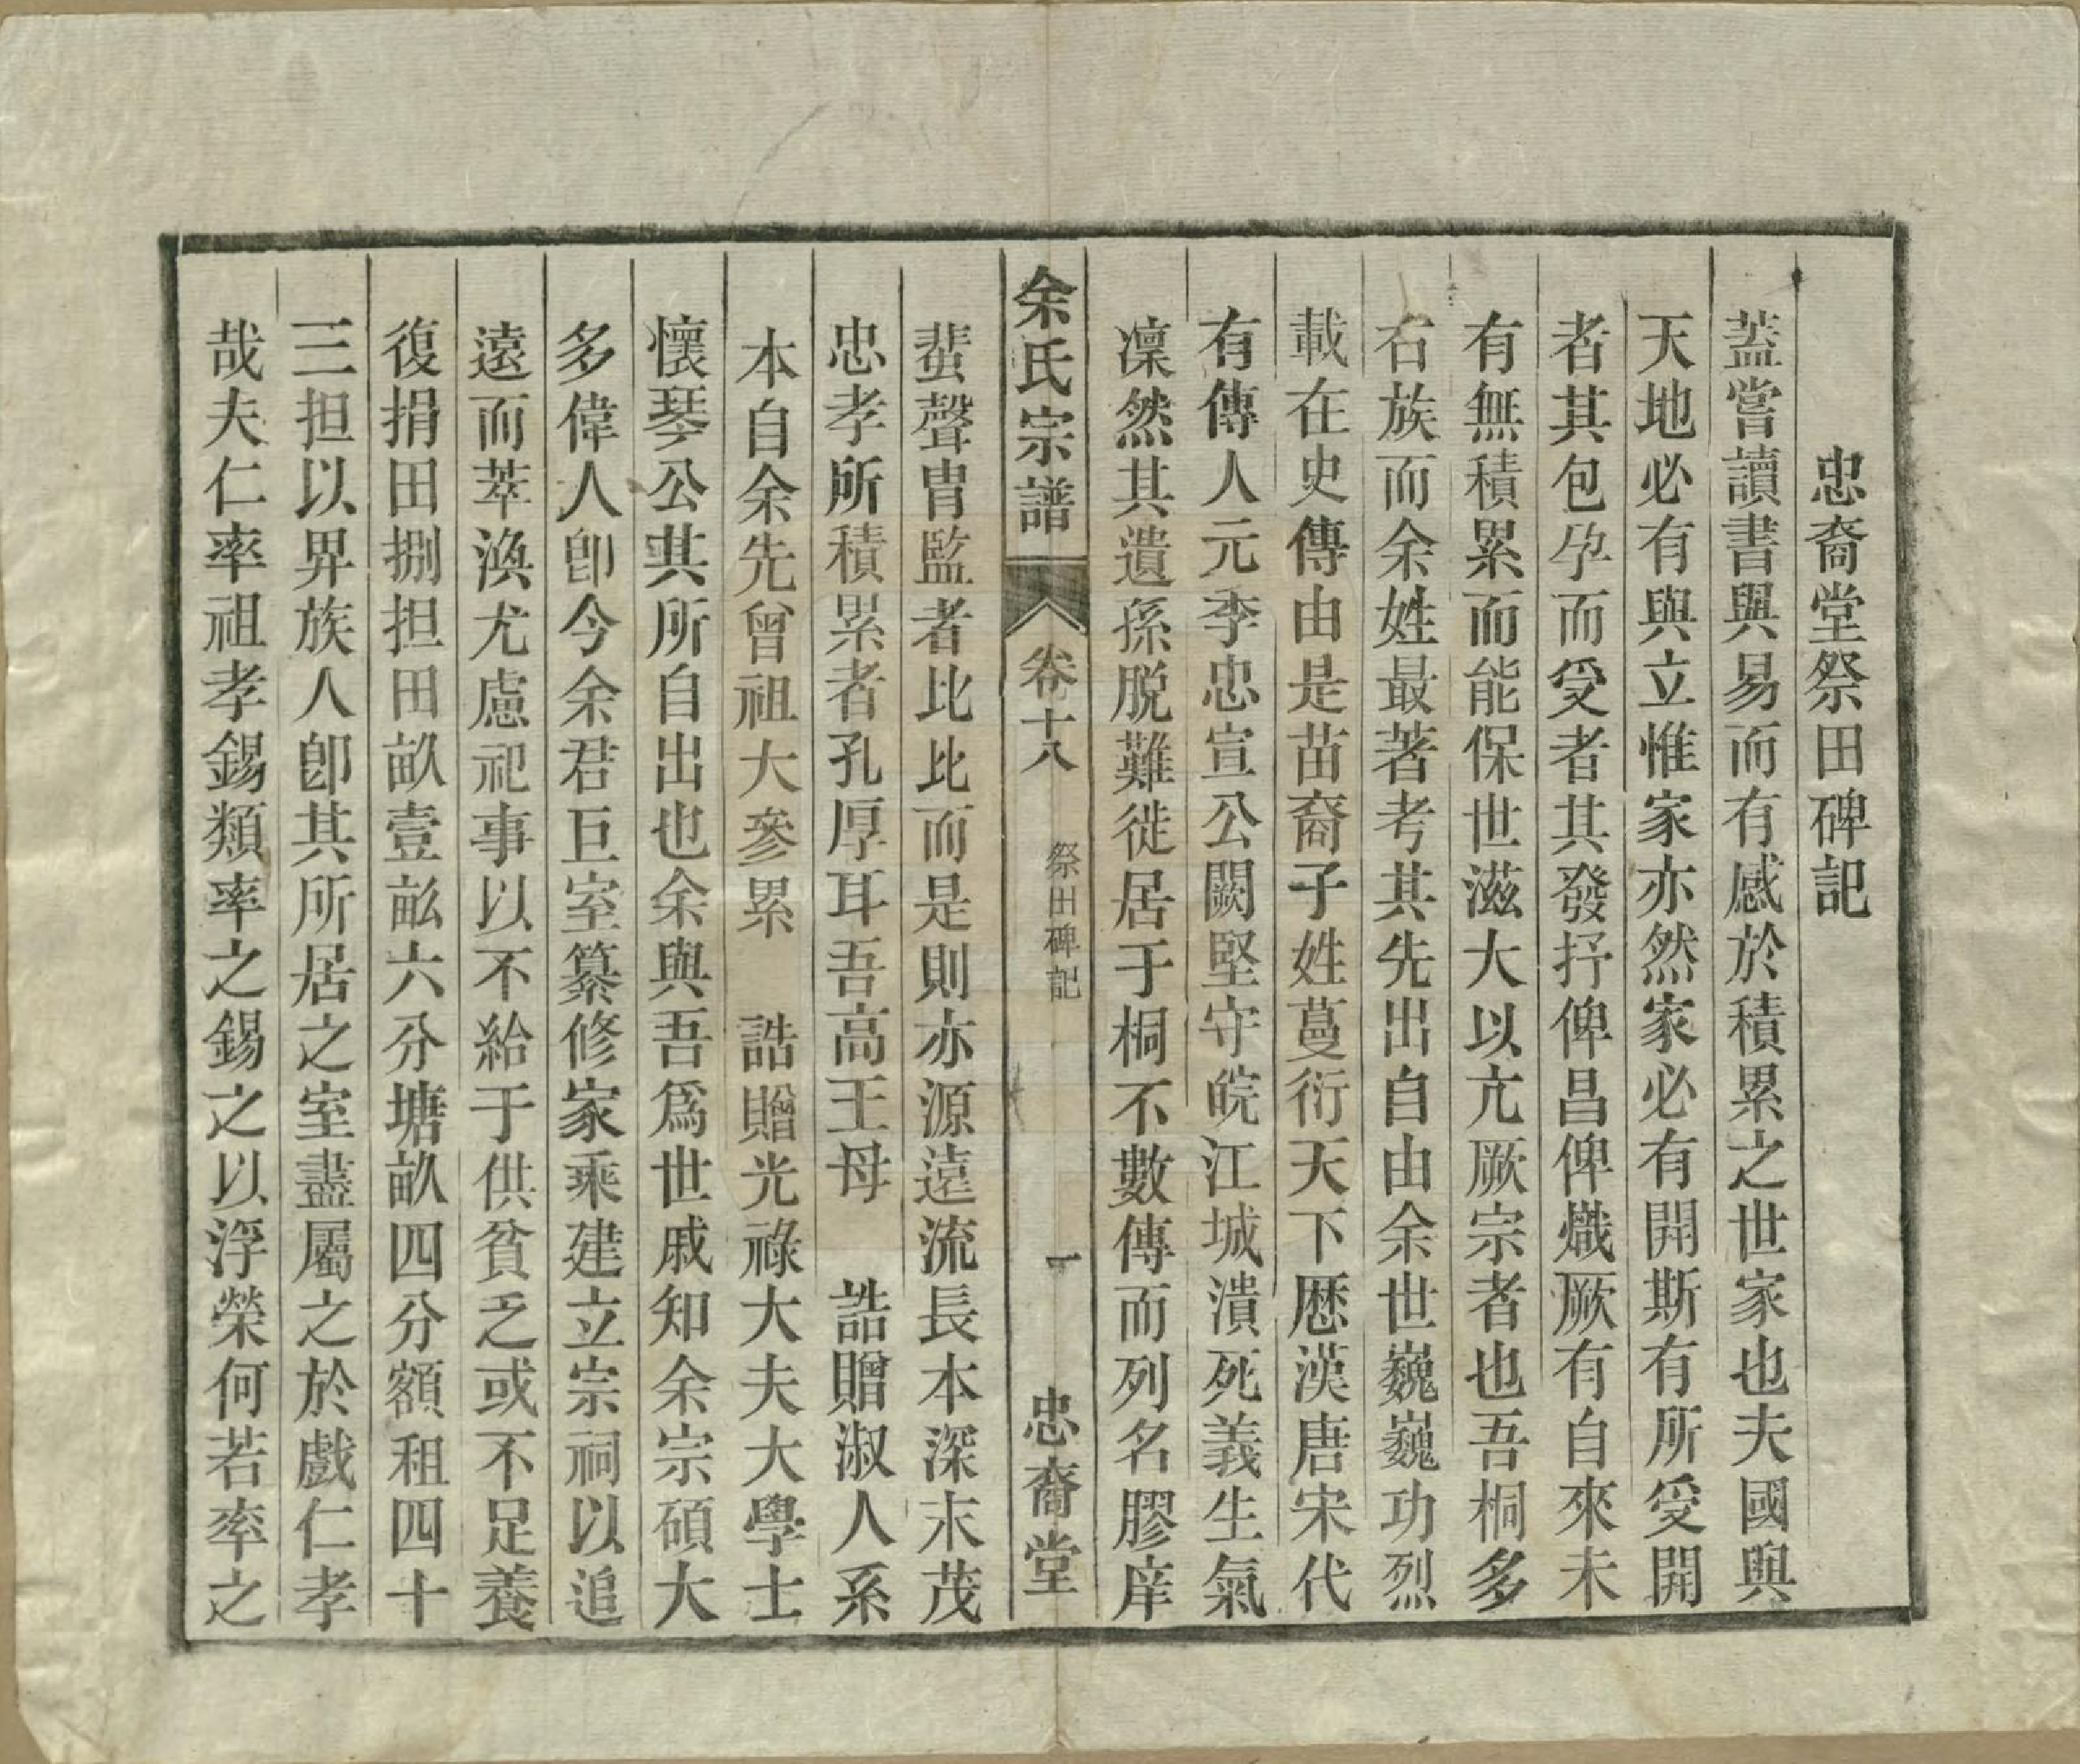 忠裔堂祭田碑記
蓋嘗讀書與易而有感於積累之世家也夫國與
天地必有與立惟家亦然家必有開斯有所受開
者其包孕而受者其發抒俾昌俾熾厥有自來未
有無積累而能保世滋大以亢厥宗者也吾桐多
右族而余姓最著考其先出自由余世巍巍功烈
載在史傳由是苗裔子姓蔓衍天下厯漢唐宋代
有傳人元季忠宣公闕堅守皖江城潰死義生氣
凜然其遺孫脱難徙居于桐不數傳而列名膠庠
余氏宗譜 卷十八 祭田碑記 一 忠裔堂
蜚聲胄監者比比而是則亦源遠流長本深末茂
忠孝所積累者孔厚耳吾高王母 誥贈淑人系
本自余先曾祖大參累 誥贈光祿大夫大學士
懷琴公其所自出也余與吾爲世戚知余宗碩大
多偉人卽今余君巨室纂修家乘建立宗祠以追
遠而萃渙尤慮祀事以不給于供貧乏或不足養
復捐田捌担田畝壹畝六分塘畝四分額租四十
三担以畀族人卽其所居之室盡屬之於戲仁孝
哉夫仁率祖孝錫類率之錫之以浮榮何若率之